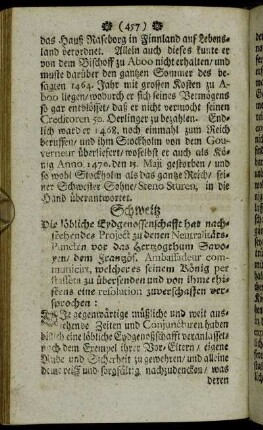 (457)
das Hauß Raseborg in Finnland auf Lebens-
land verordnet. Allein auch dieses kunte er
von dem Bischoff zu Aboo nicht erhalten/ und
muste darüber den gantzen Sommer des be-
sagten 1464. Jahr mit grossen Kosten zu A-
boo liegen/ wodurch er sich seines Vermögens
so gar entblösset/ daß er nicht vermocht seinen
Creditoren 50. Oerlinger zu bezahlen. End-
lich ward er 1468. noch einmahl zum Reich
beruffen/ und ihm Stockholm von dem Gou-
verneur überliefert/ woselbst er auch als Kö-
nig Anno 1470. den 15. Maji gestorben/ und
so wohl Stockholm als das gantze Reich/ sei-
ner Schwester Sohne/ Steno Sturen, in die
Hand überantwortet.
Schweitz
Die löbliche Eydgenossenschafft hat nach-
stehendes Project zu denen Neutralitäts-
Puncten vor das Hertzogthum Savo-
yen, dem Frantzös. Ambassadeur com-
municirt, welcher es seinem König per
staffeta zu übersenden und von ihme
eine resolution zu verschaffen ver-
sprochen:
Die gegenwärtige mißliche und weit aus-
sehende Zeiten und Conjuncturen haben
billich eine löbliche Eydgenoßschafft veranlasset/
nach dem Exempel ihrer Vor-Eltern/ eigene
Ruhe und Sicherheit zu gewehren/ und alleine
reiff und sorgfältig nachzudencken/ was
deren